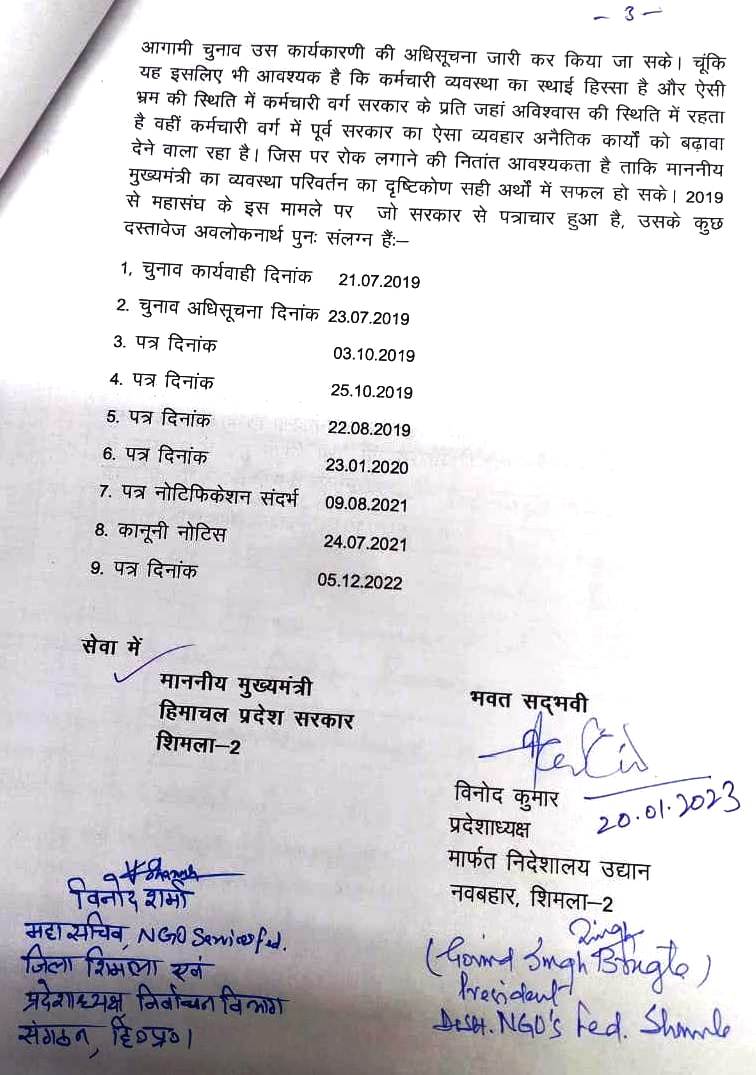 – 3 –
आगामी चुनाव उस कार्यकारणी की अधिसूचना जारी कर किया जा सके। चूंकि
यह इसलिए भी आवश्यक है कि कर्मचारी व्यवस्था का स्थाई हिस्सा है और ऐसी
भ्रम की स्थिति में कर्मचारी वर्ग सरकार के प्रति जहां अविश्वास की स्थिति में रहता
है वहीं कर्मचारी वर्ग में पूर्व सरकार का ऐसा व्यवहार अनैतिक कार्यो को बढ़ावा
देने वाला रहा है। जिस पर रोक लगाने की नितांत आवश्यकता है ताकि माननीय
मुख्यमंत्री का व्यवस्था परिवर्तन का दृष्टिकोण सही अर्थों में सफल हो सके। 2019
से महासंघ के इस मामले पर जो सरकार से पत्राचार हुआ है, उसके कुछ
दस्तावेज अवलोकनार्थ पुनः संलग्न हैः–
1, चुनाव कार्यवाही दिनांक 21.07.2019
2. चुनाव अधिसूचना दिनांक 23.07.2019
3. पत्र दिनांक 03.10.2019
4. पत्र दिनांक 25.10.2019
5. पत्र दिनांक 22.08.2019
6. पत्र दिनांक 23.01.2020
7. पत्र नोटिफिकेशन संदर्भ 09.08.2021
8. कानूनी नोटिस 24.07.2021
9. पत्र दिनांक 05.12.2022
सेवा में
माननीय मुख्यमंत्री
हिमाचल प्रदेश सरकार
शिमला–2
भवत सद्भवी
विनोद कुमार
20.01.2023
प्रदेशाध्यक्ष
मार्फत निदेशालय उद्यान
नवबहार, शिमला–2
विनोद शर्मा
महासचिव, NGO Services fed.
जिला शिमला एवं
प्रदेशाध्यक्ष निर्वाचन विभाग
संगठन, हि०प्र०।
(Govind Singh
President
Distt. NGO's Fed. Shimla